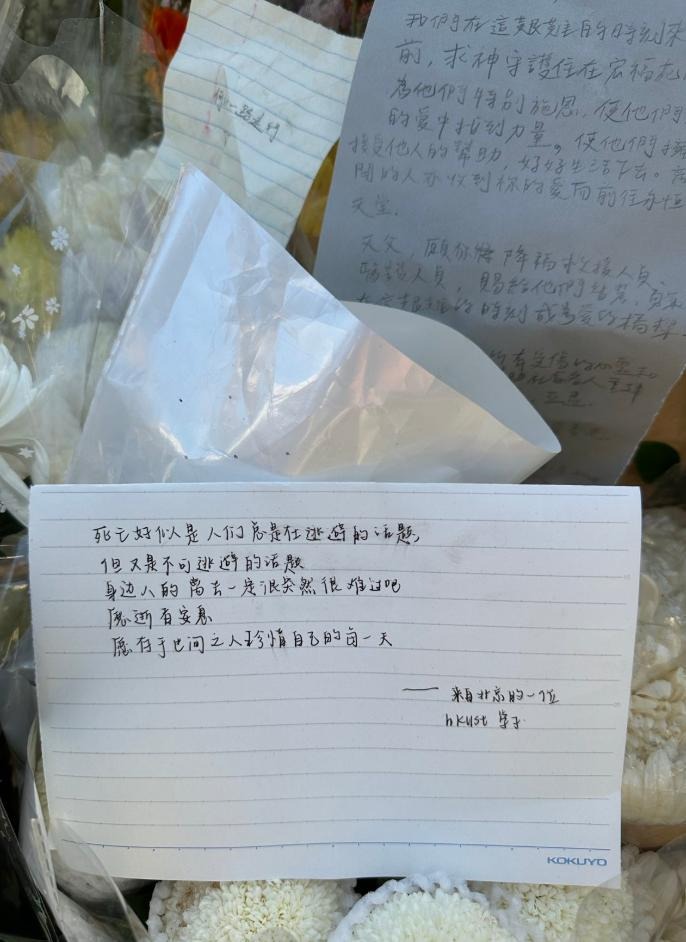 我們在這艱難的時刻來
前，求神守護住在宏福苑
為他們特別施恩，使他們
的愛中找到力量。使他們
接受他人的幫助，好好生活下去。離
開的人亦收到你的愛而前往永恒
天堂.
天父，願你將降福救援人員、
醫護人員，賜給他們智慧，
的時刻成為愛的橋樑.
有受傷的心靈和
一路走好
死亡好似是人们总是在逃避的话题,
但又是不可逃避的话题
身边人的离去一定很突然很难过吧
愿逝者安息
愿存于世间之人珍惜自己的每一天
—— 来自北京的一位
hkust 学子
KOKUYO